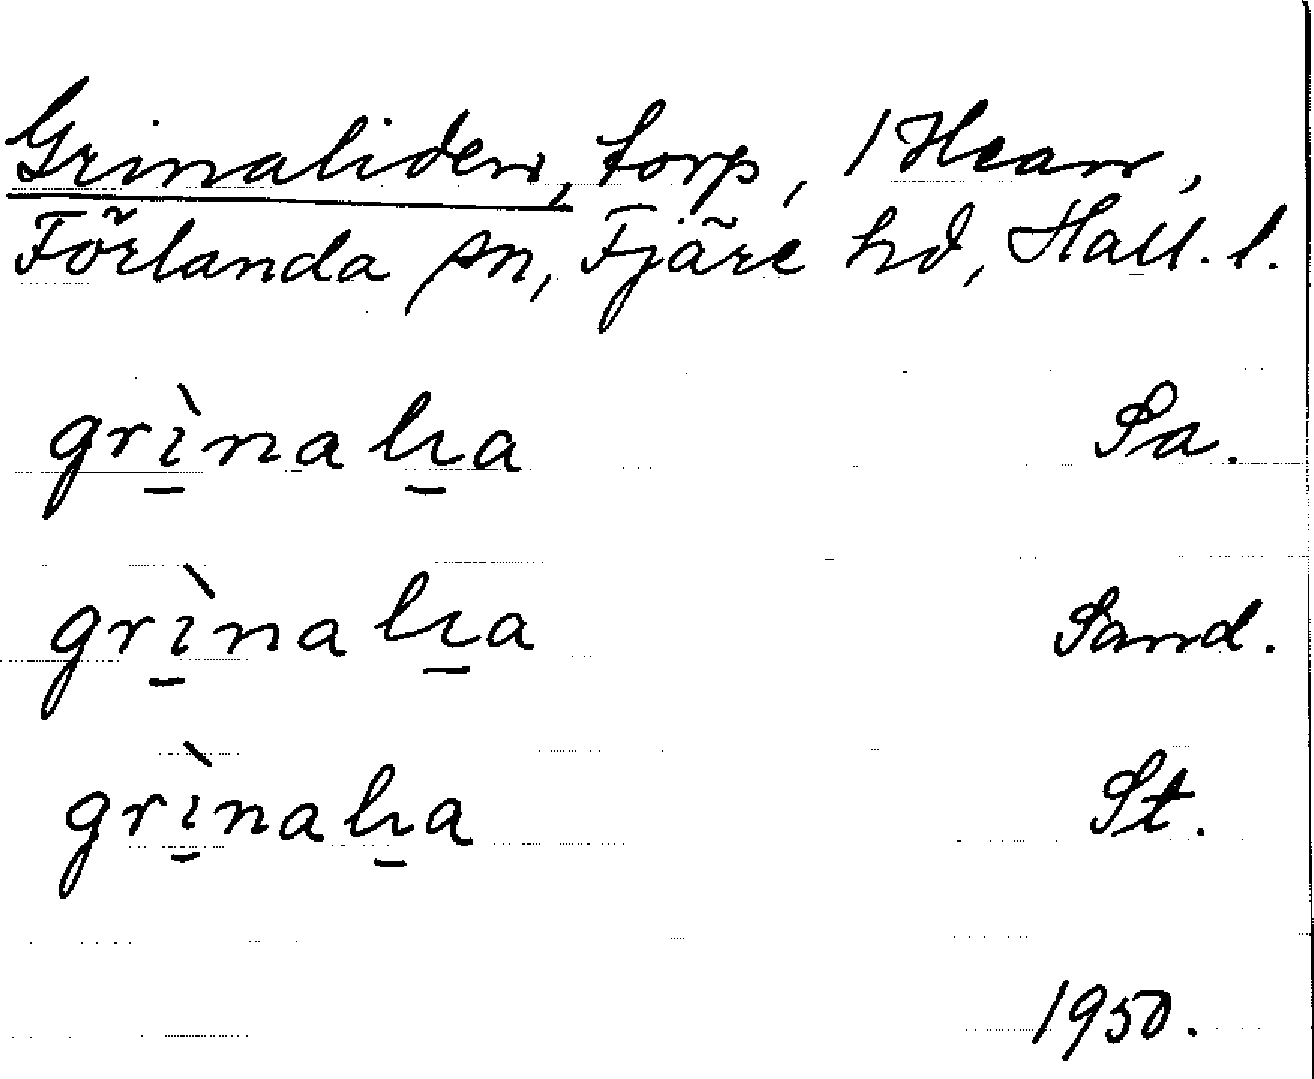 Grinaliden, torp, 1 Hean,
Förlanda sn, Fjäre hd, Hall. l.
grì̱nali̱a Sa.
grì̱nali̱a Sand.
grì̱nali̱a St.
1950.